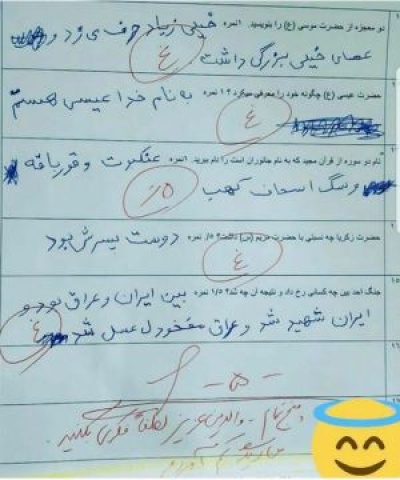 دو معجزه از حضرت موسی (ع) را بنویسید. ۱نمره خیلی زیاد حرف می زد و
عصای خیلی بزرگی داشت. غ
حضرت عیسی (ع) چگونه خود را معرفی میکرد؟ ۱ نمره به نام خدا عیسی هستم
غ
نام دو سوره از قرآن مجید که به نام جانوران است را نام ببرید. ۱نمره عنکبوت و قورباقه
و سگ اسحاب کهب ۰/۵
حضرت زکریا چه نسبتی با حضرت مریم (س) داشت؟ ۰/۵ نمره دوست پسرش بود
غ
جنگ احد بین چه کسانی رخ داد و نتیجه آن چه شد؟ ۱/۵ نمره بین ایران و عراق بود و
ایران شهید شد و عراق مفخود ل عسل شد غ
۱۶
-۵-
والدین عزیز لطفاً فکری بکنید.